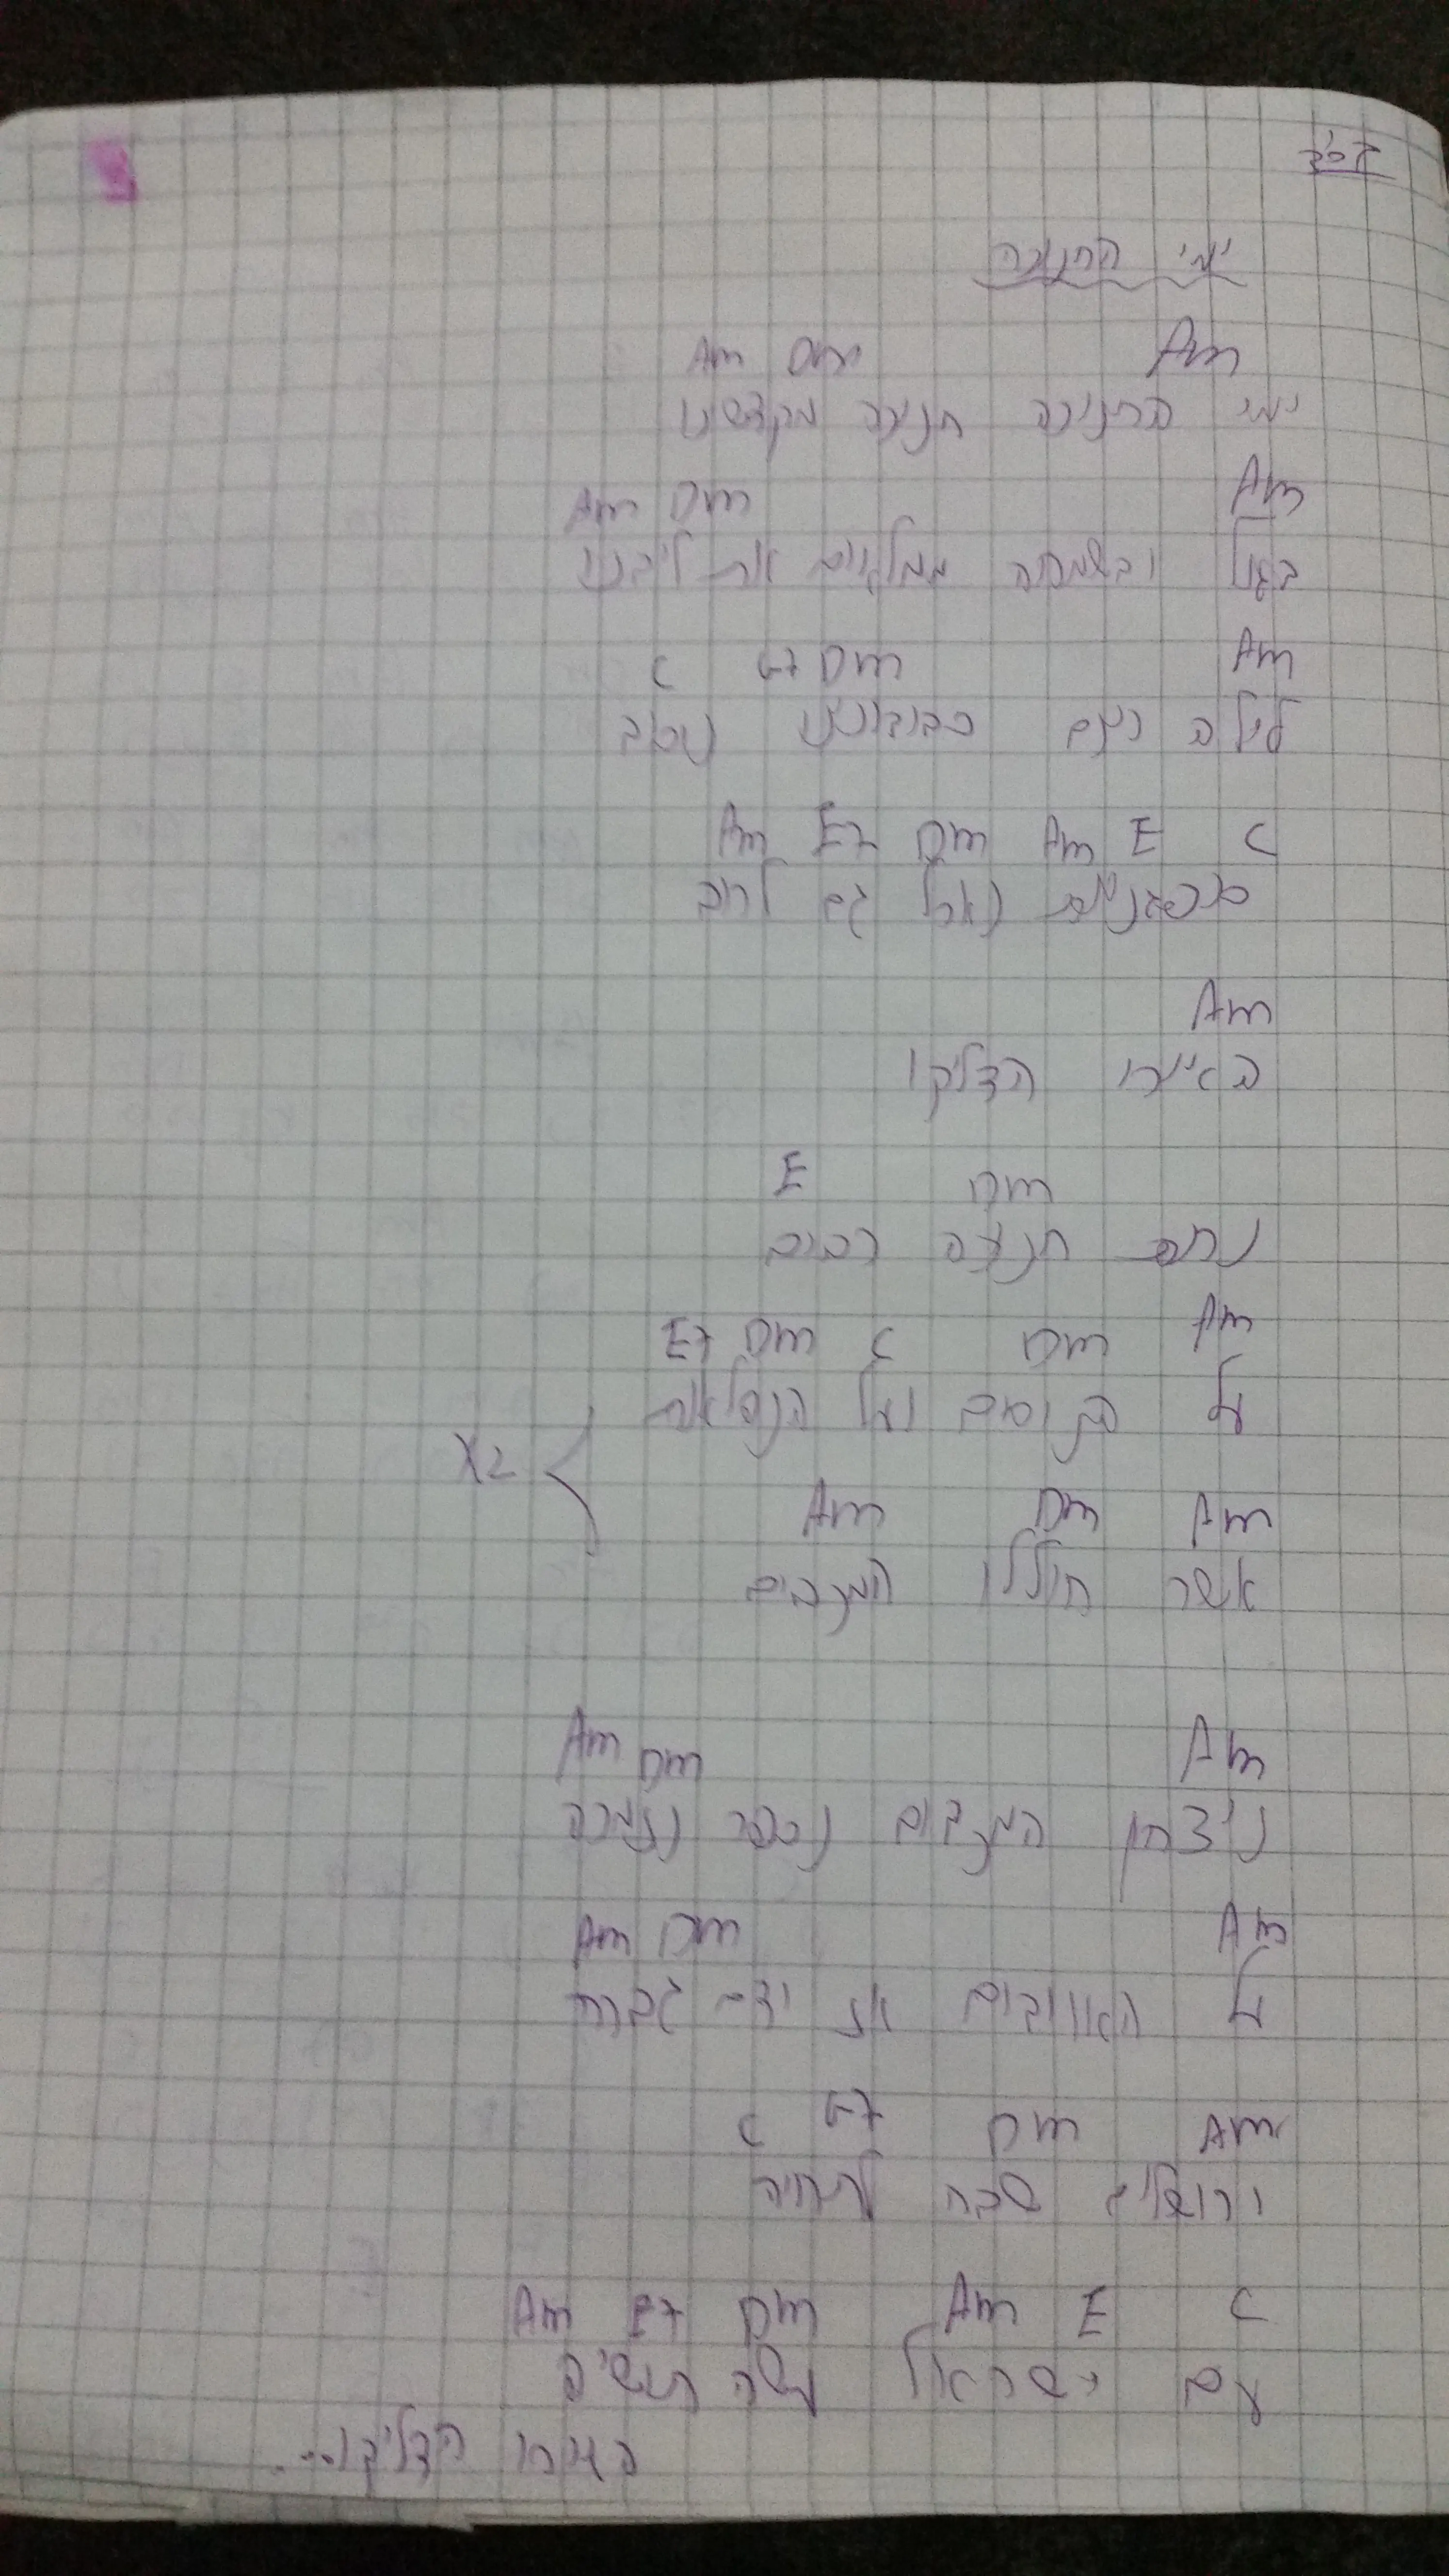 בס"ד
ימי החנוכה
Am Dm Am
ימי החנוכה חנוכת מקדשנו
Am Dm Am
בגיל ובשמחה ממלאים את ליבנו
C G7 Dm Am
לילה ויום סביבוננו ניסוב
Am E7 Dm Am E C
סופגניות נאכל גם לרוב
Am
האירו הדליקו
E Dm
נרות חנוכה רבים
E7 Dm C Dm Am
על הניסים ועל הנפלאות
X2
Am Dm Am
אשר חוללו המכבים
Am Dm Am
ניצחון המכבים נספר נזמרה
Am Dm Am
על האוייבים אז ידם גברה
C G7 Dm Am
ירושלים שבה לתחיה
Am E7 Dm Am E C
עם ישראל עשה תושיה
האירו הדליקו...